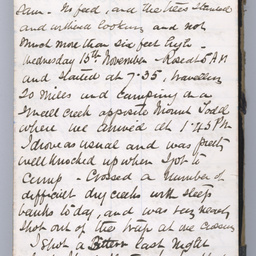 8am - No feed, and the trees stunted
and withered looking and not
much more than six feet high -
Wednesday 15th November - Rose at 5 AM
and started at 7.35, travelling
20 miles and camping on a
small creek opposite Mount Todd
where we arrived at 1.45 PM
I drove as usual and was pretty
well knocked up when I got to
camp - Crossed a number of
difficult dry creeks with steep
banks to day, and was very nearly
shot out of the trap at one crossing
I shot a Bittern last night